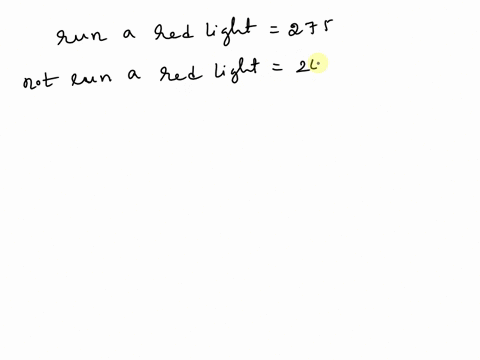 run a red light = 275
not run a red light = 2